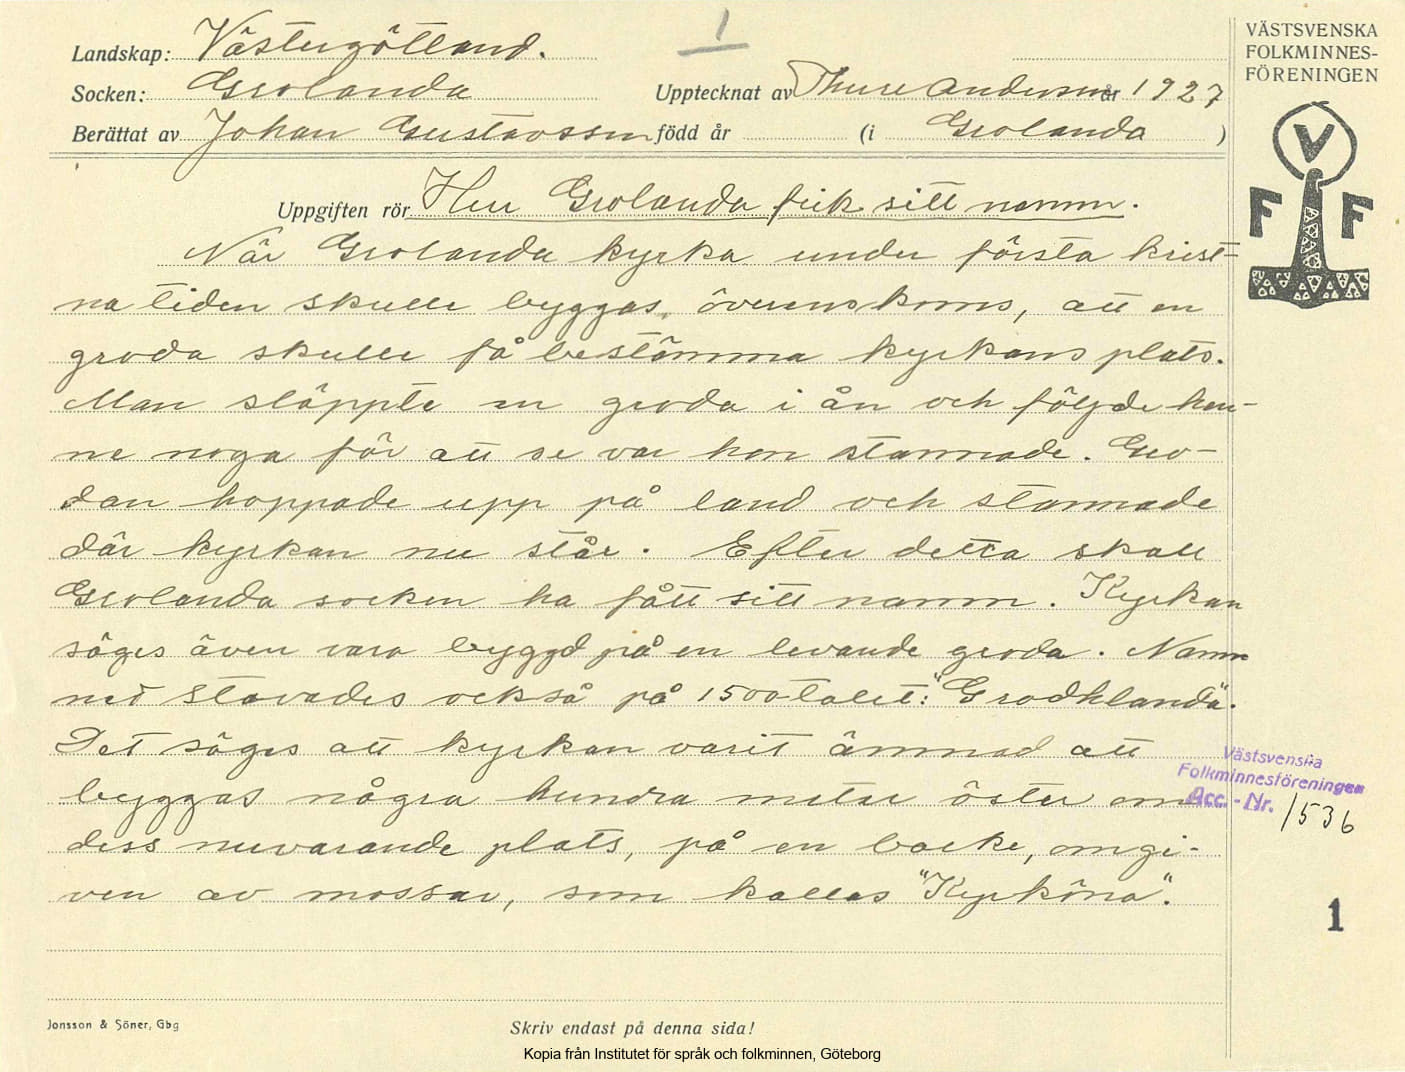 1
Landskap: Västergötland.
Socken: Grolanda
Upptecknat av Thure Andersson år 1927
Berättat av Johan Gustavsson född år (i Grolanda )
VÄSTSVENSKA
FOLKMINNES-
FÖRENINGEN
V
F F
Uppgiften rör Hur Grolanda fick sitt namn.
När Grolanda kyrka under första krist-
na tiden skulle byggas, överenskoms, att en
groda skulle få bestämma kyrkans plats.
Man släppte en groda i ån och följde hen-
ne noga för att se var hon stannade. Gro-
dan hoppade upp på land och stannade
där kyrkan nu står. Efter detta skall
Grolanda socken ha fått sitt namn. Kyrkan
säges även vara byggd på en levande groda. Namn
net stavades också på 1500talet: "Grodhlanda".
Det säges att kyrkan varit ämnad att
byggas några hundra meter öster om
dess nuvarande plats, på en backe, omgi-
ven av mossar, som kallas "Kyrköna".
Västsvenska
Folkminnesföreningen
Acc. - Nr. 1536
1
Jonsson & Söner, Gbg
Skriv endast på denna sida!
Kopia från Institutet för språk och folkminnen, Göteborg